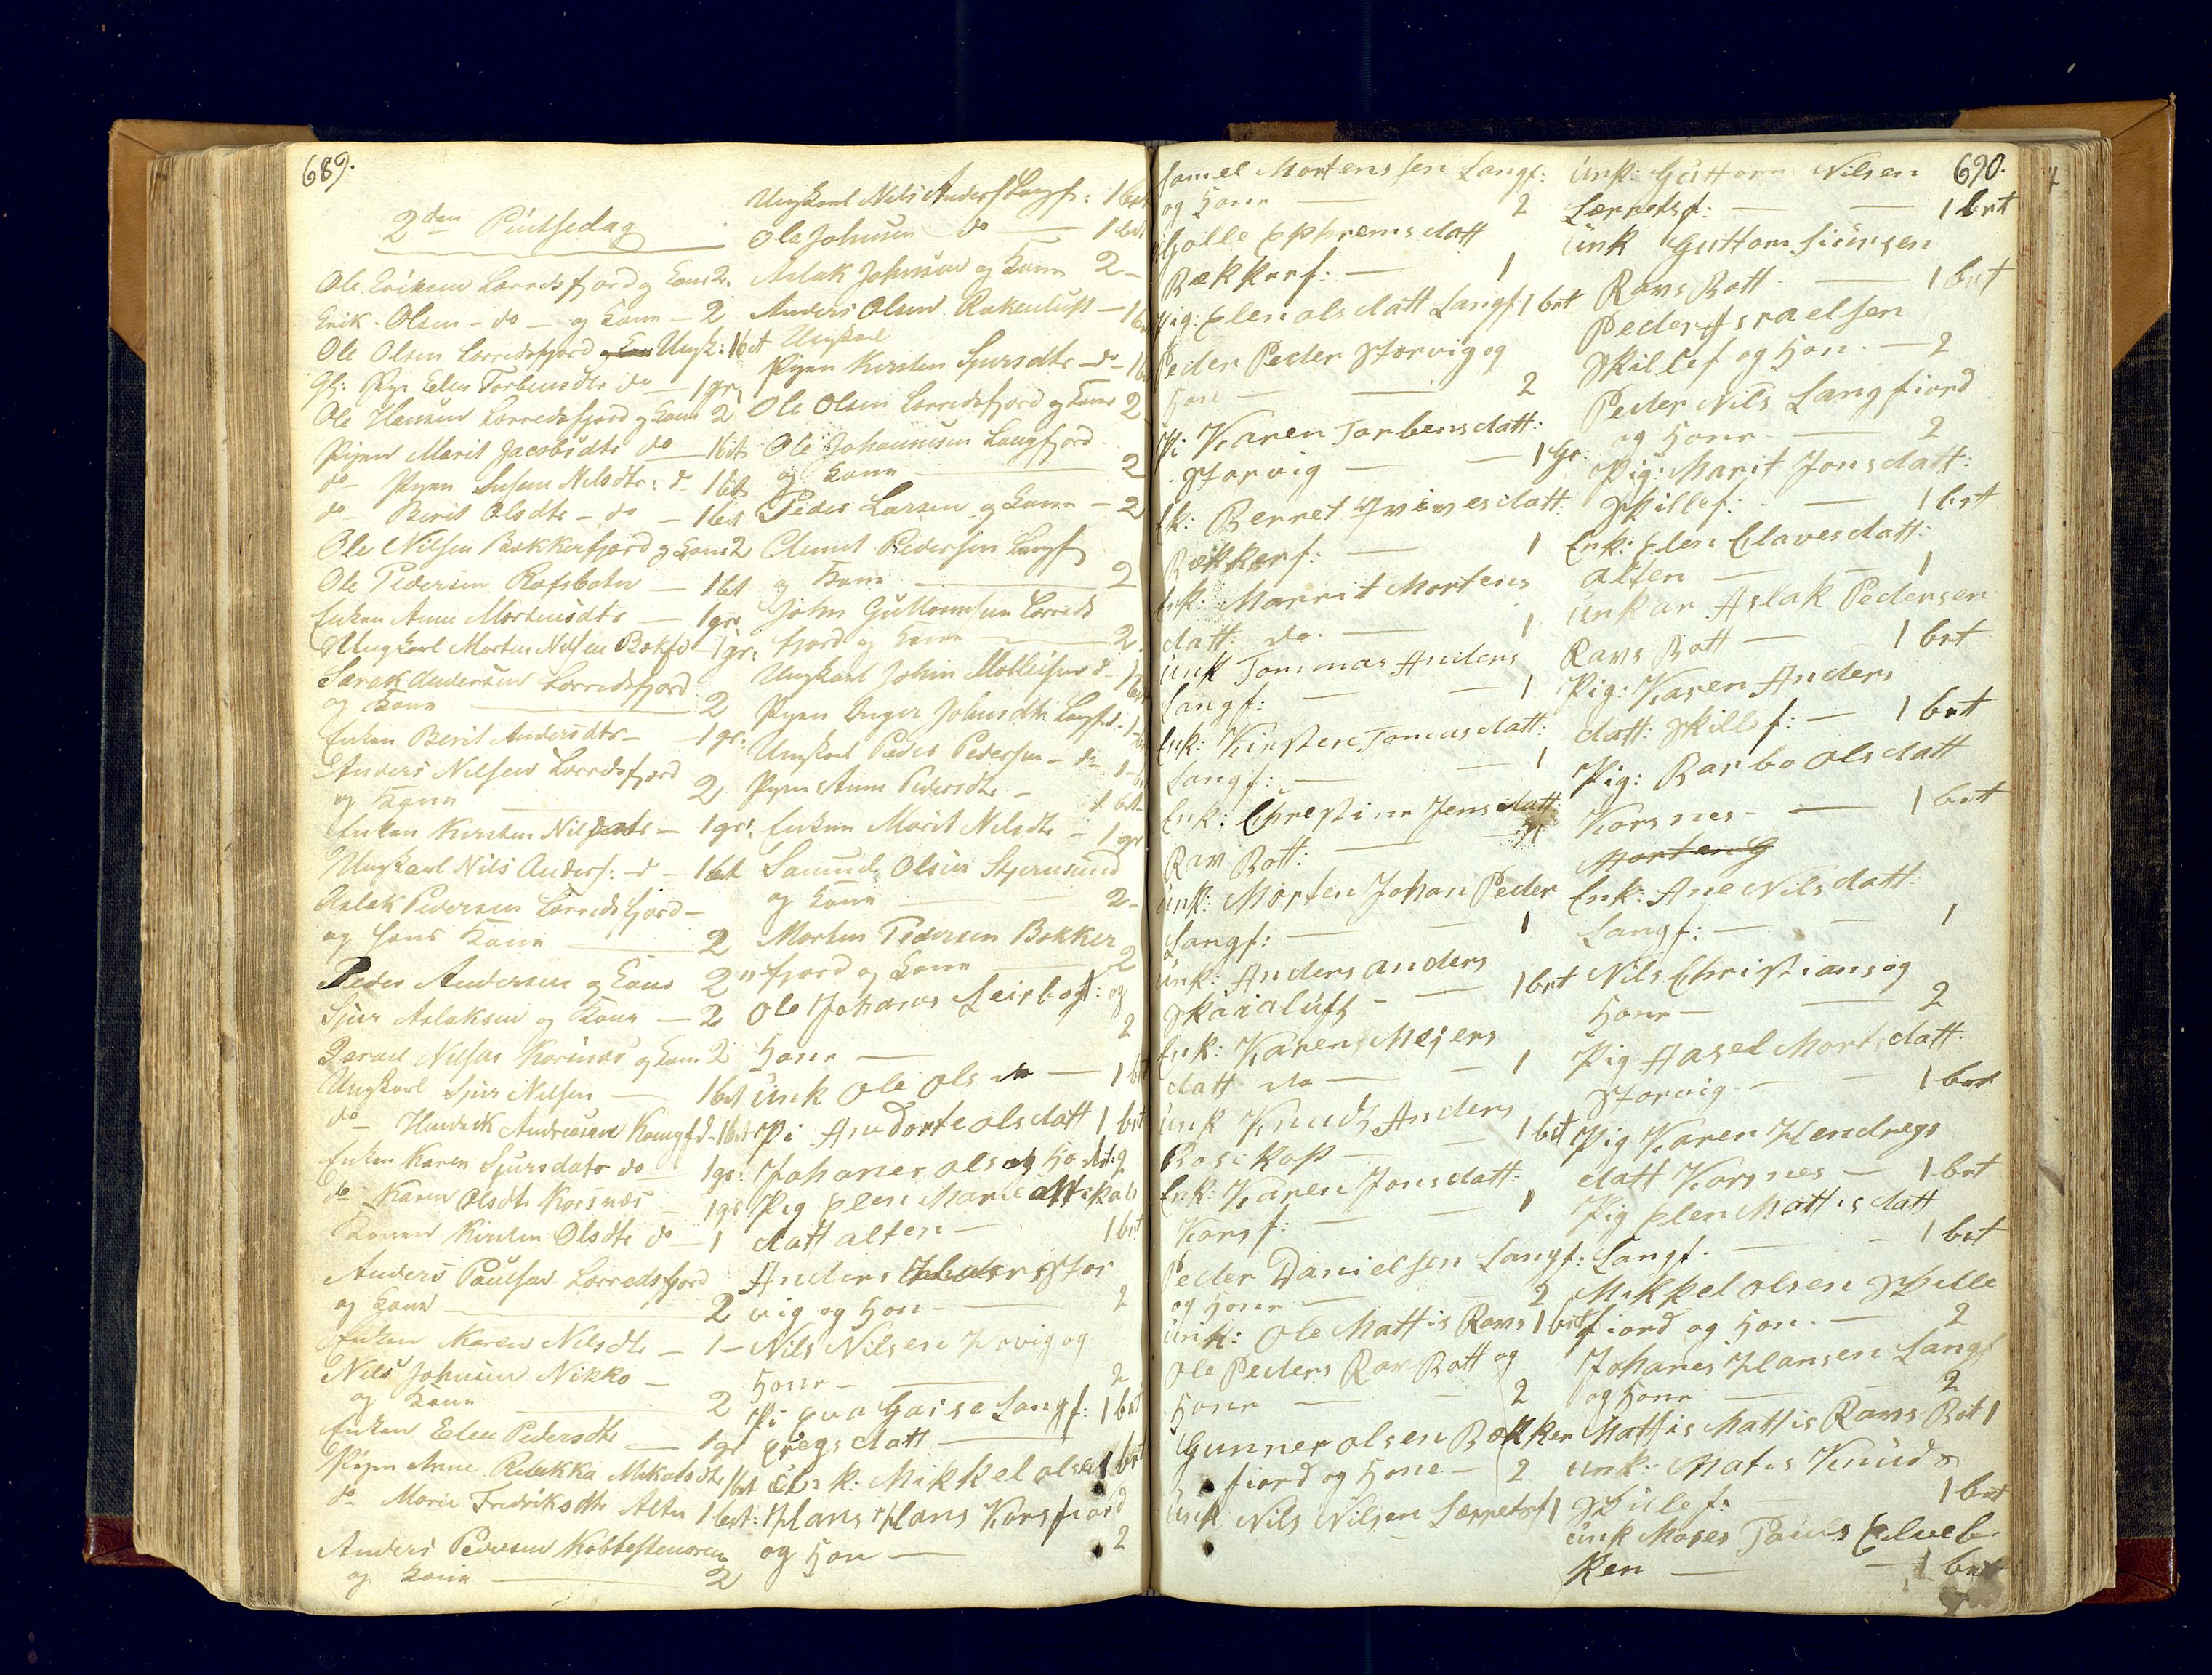 689.
2den Pintsedag
Ole Eriksen Lerredsfjord og Kone 2.
Erik Olsen - do - og Kone - 2
Ole Olsen Lerredsfjord Ungk: 1 bet
Gl: Pige Elen Torbensdtr do - 1 gr.
Ole Hansen Lerredsfjord og Kone 2
Pigen Marit Jacobsdtr do - 1 bet
do Pigen Susene Nilsdtr: do 1 bet
do Berit Olsdtr - do - 1 bet
Ole Nilsen Bekkerfjord og Kone 2
Ole Pedersen Rafsboten - 1 bet
Enken Anne Mortensdtr - 1 gr.
Ungkarl Morten Nilsen Bekfd - 1 gr.
Sarak Andersen Lerredsfjord
og Kone - 2
Enken Berit Andersdtr - 1 gr.
Anders Nilsen Lerredsfjord
og Kone - 2
Enken Kirsten Nilsdatr - 1 gr.
Ungkarl Nils Anders: - d - 1 bet
Aslak Pedersen Lerredsfjord -
og hans Kone - 2
Peder Andersen og Kone 2
Sjur Aslaksen og Kone - 2
Israel Nilsen Korsnæs og Kone 2
Ungkarl Sjur Nilsen - 1 bet
do - Hendrik Andreasen Kongsfd - 1 bet
Enken Karen Sjursdatr do - 1 gr.
do Karen Olsdtr Korsnæs - 1 gr
Konen Kirsten Olsdtr do - 1
Anders Poulsen Lerredsfjord
og Kone - 2
Enken Karen Nilsdtr - 1 -
Nils Johnsen Nikko -
og Kone - 2
Enken Elen Pedersdtr - 1 gr
Pigen Anne Rebekka Mikalsdtr 1 bet
do Marie Fredriksdtr Alten 1 bet:
Anders Pedersen
og Kone - 2
Ungkarl Nils Anders Langf: 1 bet
Ole Johnsen do - 1 bet
Aslak Johnsen og Kone 2 -
Anders Olsen - 1 bet
Ungkarl
Pigen Kirsten Sjursdtr - do - 1 bet
Ole Olsen Lerredsfjord og Kone 2
Ole Johannesen Langfjord
og Kone - 2
Peder Larsen og Kone - 2
Clemet Pedersen Langf
og Kone - 2
John Guttormsen Lerreds
fjord og Kone - 2.
Ungkarl John Mollisen d - 1 bet
Pigen Inger Johnsdtr Langfd. - 1 -
Ungkarl Peder Pedersen - do 1 -
Pigen Anne Pedersdtr - 1 bet
Enken Marit Nilsdtr - 1 gr
Samuel Olsen Stjernsund
og Kone - 2 -
Morten Pedersen Bekker
fjord og Kone - 2
Ole Johans Leirbogt: og
Kone - 2
Unk Ole Ols do - 1 brt
Pi Anedorte olsdatt 1 brt
Johanes ols og Ko 2
Pig Elen Marie
datt alten - 1 brt
Anders Stor
vig og Kon - 2
Nils Nilsen og
Kone - 2
Pi Eva Gaise Langf: 1 brt
Eregsdatt -
Unk: Mikkel olsen 1 brt
Hans Hans Korsfiord
og Kon - 2
690.
Samel Mortenssen Langf:
og Kone - 2
Golle Ephremsdatt
Bækkerf: - 1
Pig: Elen olsdatt Langf: 1 brt
Peder Peder Storvig og
Kon - 2
Pi Karen Torbensdatt:
Storvig - 1 Gr:
Ek: Berret
Bækkerf: - 1
Enk: Marrit Mortens
datt: do. - 1
Unk Tommas Anders
Langf: - 1
Enk: Kirsten Tomasdatt:
Langf: - 1
Enk: Chrestine Jensdatt:
Rav Bott: -
Unk: Morten Johan Peder
Langf: - 1
Unk: Anders anders
Skaialuft - 1 brt
Enk: Karen Mejers
datt do - 1
Unk Knudt Anders
Bosikop - 1 brt
Enk: Karen Jonsdatt:
Korsf: - 1
Peder Danielsen Langf:
og Kone - 2
Unk: Ole Mattis Ravs 1 brt
Ole Peders Rav Bott og
Kone - 2
Gunner olsen Bækker
fiord og Kone - 2
Unk Nils Nilsen Lærretsf 1
Unk: Guttorm Nilsen
Lærretsf: - 1 brt
Unk Guttorm Siursen
Ravs Bott - 1 brt
Peder Israelsen
Skillef og Kon. - 2
Peder Nils Langfiord
og Kone - 2
Pig: Marit Jonsdatt:
Skillef: - 1 brt
Enk: Elen Clavesdatt:
alten - 1
Unkar Aslak Pedersen
Ravs Bott - 1 brt
Pig: Karen Anders
datt: Skillef: - 1 brt
Pig: Barbo olsdatt
Korsnes - 1 brt
Morten G
Enk: Ane Nilsdatt:
Langf: - 1
Nils Christians og
Kone - 2
Pig Hasel Mortsdatt:
Storvig - 1 brt
Pig Karen Hendregs
datt Korsnes - 1 brt
Pig Elen Mattisdatt
Langf. - 1 brt
Mikkel olsen Skille
fiord og Kon. - 2
Johanes Hansen Langf
og Kone - 2
Mattis Mattis Ravs Bot 1
Unk: Matis Knuds
Skillef: - 1 brt
Unk Moses Pauls Elveb
ken - 1 brt